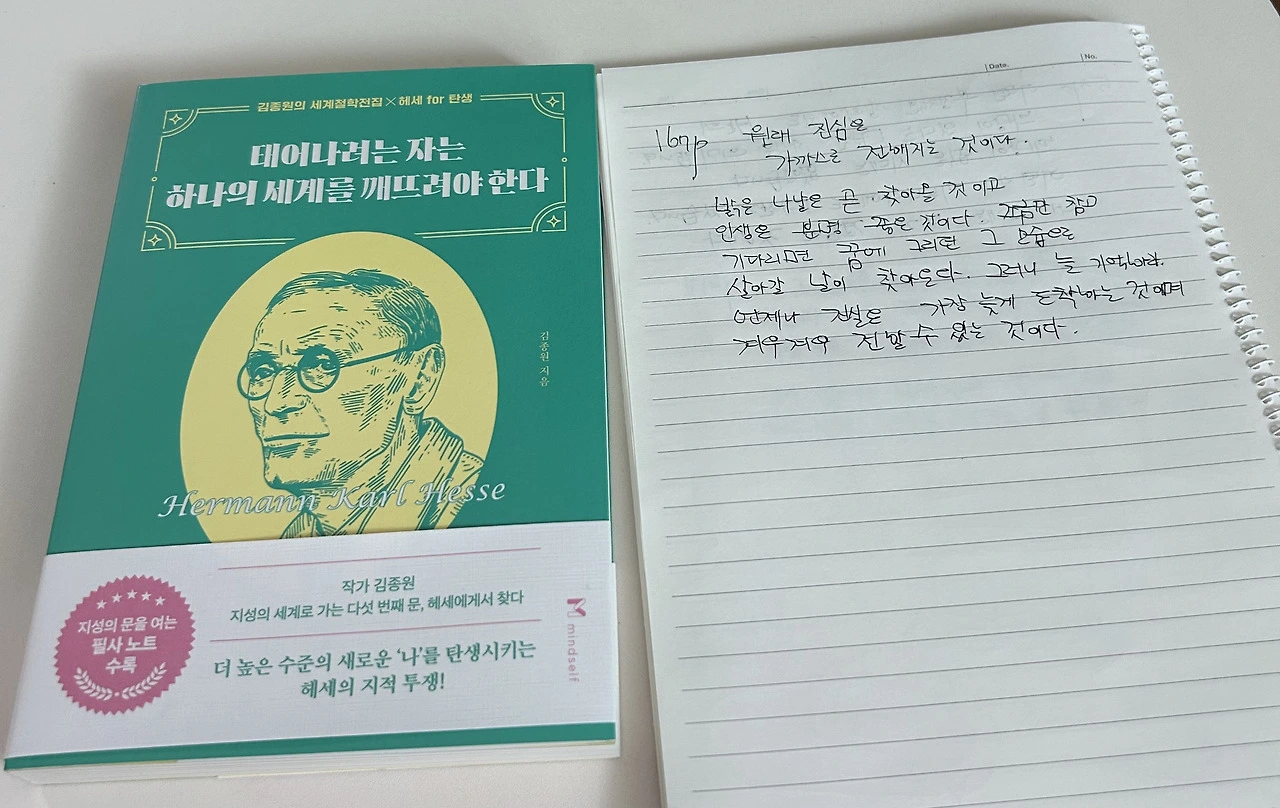 김종원의 세계철학전집×헤세 for 탄생
태어나려는 자는
하나의 세계를 깨뜨려야 한다
김종원 지음
Hermann Karl Hesse
작가 김종원
지성의 세계로 가는 다섯 번째 문, 헤세에게서 찾다
더 높은 수준의 새로운 ‘나’를 탄생시키는
헤세의 지적 투쟁!
지성의 문을 여는
필사 노트
수록
mindself
Date.
No.
167p 원래 진심은
가까스로 전해지는 것이다.
밝은 나날은 곧 찾아올 것이고
인생은 분명 좋은 것이다. 조금만 참고
기다리면 꿈에 그리던 그 모습으로
살아갈 날이 찾아온다. 그러니 늘 기억하라.
언제나 진실은 가장 늦게 도착하는 것이며
겨우겨우 전할 수 있는 것이다.